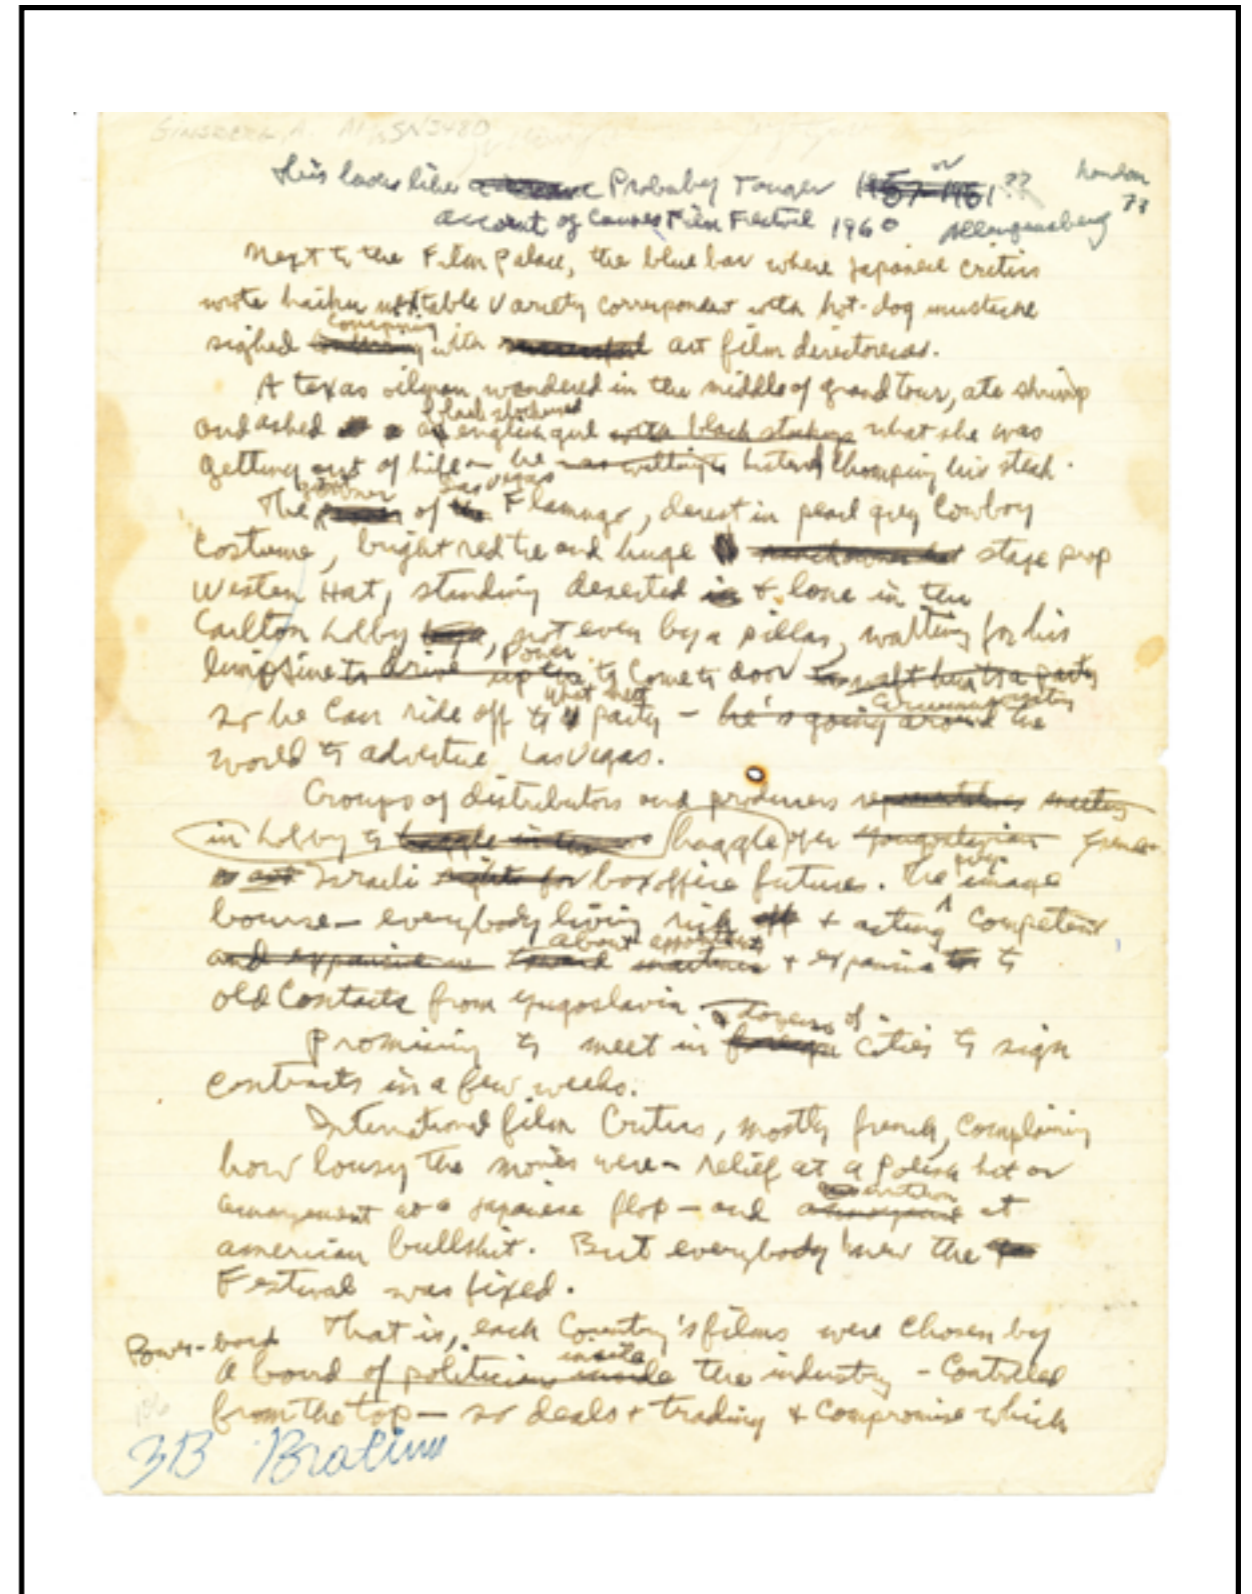 GINSBERG, A.
This looks like Probably Tangier 1957-1961 ?? or London
account of Cannes Film Festival 1960 Allen Ginsberg 73
Next to the Film Palace, the blue bar where Japanese critics
wrote haiku next table Variety correspondent with hot-dog mustache
sighed conspiring with successful art film directories.
A texas oilman wandered in the middle of grand tour, ate shrimp
and asked black stockened an english girl with black stockings what she was
getting out of life - he was willing to listened chomping his steak.
The owner of the Las Vegas Flamingo, drest in pearl grey Cowboy
Costume, bright red tie and huge stage prop
Western Hat, standing deserted in & lone in the
Carlton Lobby, not even by a pillar, waiting for his
limosine to drive up to come to door to waft him to a party
so he can ride off to what next party - he's going around circumnavigating the
world to advertise Las Vegas.
Groups of distributors and producers representatives meeting
in lobby to haggle over Yougoslavian French
Israeli rights for box office futures. The image
bourse - everybody living high off & acting competent
and expansive about & expansive to
old Contacts from Yugoslavia
Promising to meet in foreign dozens of cities to sign
contracts in a few weeks.
International film Critics, mostly french, Complaining
how lousy the movies were - relief at a Polish hit or
amusement at a Japanese flop - and annoyance at
american bullshit. But everybody knew the
Festival was fixed.
Power-board That is, each Country's films were chosen by
a board of politicians inside the industry - Controlled
from the top - so deals & trading & compromise which
106
3B